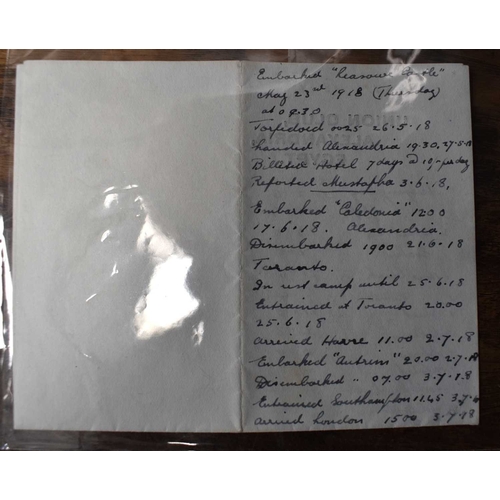 Embarked "Leasowe Castle"
May 23rd 1918 (Thursday)
at 09.30
Torpedoed 0025 26.5.18
Landed Alexandria 19.30, 27.5.18
Billeted Hotel 7 days @ 10/- per day
Reported Mustapha 3.6.18,
Embarked "Caledonia" 1200
17.6.18. Alexandria.
Disembarked 1900 21.6.18
Taranto.
In rest camp until 25.6.18
Entrained at Toranto 20.00
25.6.18
Arrived Havre 11.00 2.7.18
Embarked "Antrim" 20.00 2.7.18
Disembarked " 07.00 3.7.18
Entrained Southampton 11.45 3.7.18
Arrived London 1500 3.7.18